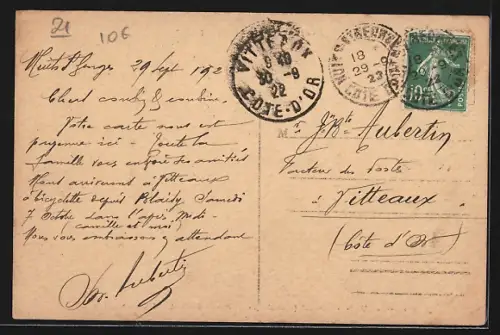 21
106
VITTEAUX
30 -9
22
COTE-D'OR
18
29 -9
22
COTE
10
POSTES
Nuits St Georges 29 Sept 192
Chers cousin & cousine,
Votre carte nous est
parvenue ici - Toute la
famille vous envoie ses amitiés
Nous arriverons à Vitteaux
à bicyclette depuis Blaisy Samedi
7 Octobre dans l'après-midi -
(Camille et moi)
Nous vous embrassons & attendant
Aubertin
M
Jn Bte Aubertin
Facteur des Postes
Vitteaux
(Côte d'Or)